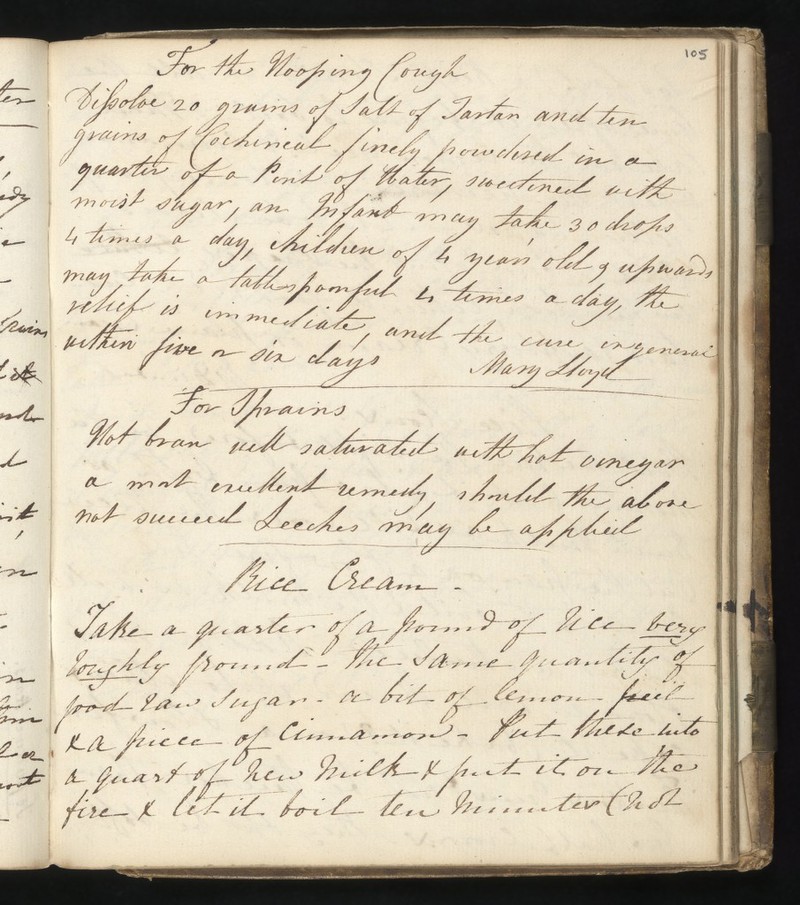 105
For the Hooping Cough
Dissolve 20 grains of Salt of Tartar and ten
grains of Cochineal finely powdered in a
quarter of a Pint of Water, sweetened with
moist sugar, an Infant may take 30 drops
4 times a day, children of 4 years old & upwards
may take a tablespoonful 4 times a day, the
relief is immediate, and the cure in general
within five or six days Mary Lloyd
For Sprains
Hot bran well saturated with hot vinegar
a most excellent remedy, should the above
not succeed Leeches may be applied
Rice Cream -
Take a quarter of a pound of Rice very
roughly ground - the same quantity of
good raw Sugar - a bit of lemon peel
& a piece of Cinnamon - Put these into
a quart of New Milk & put it on the
fire & let it boil ten Minutes (not